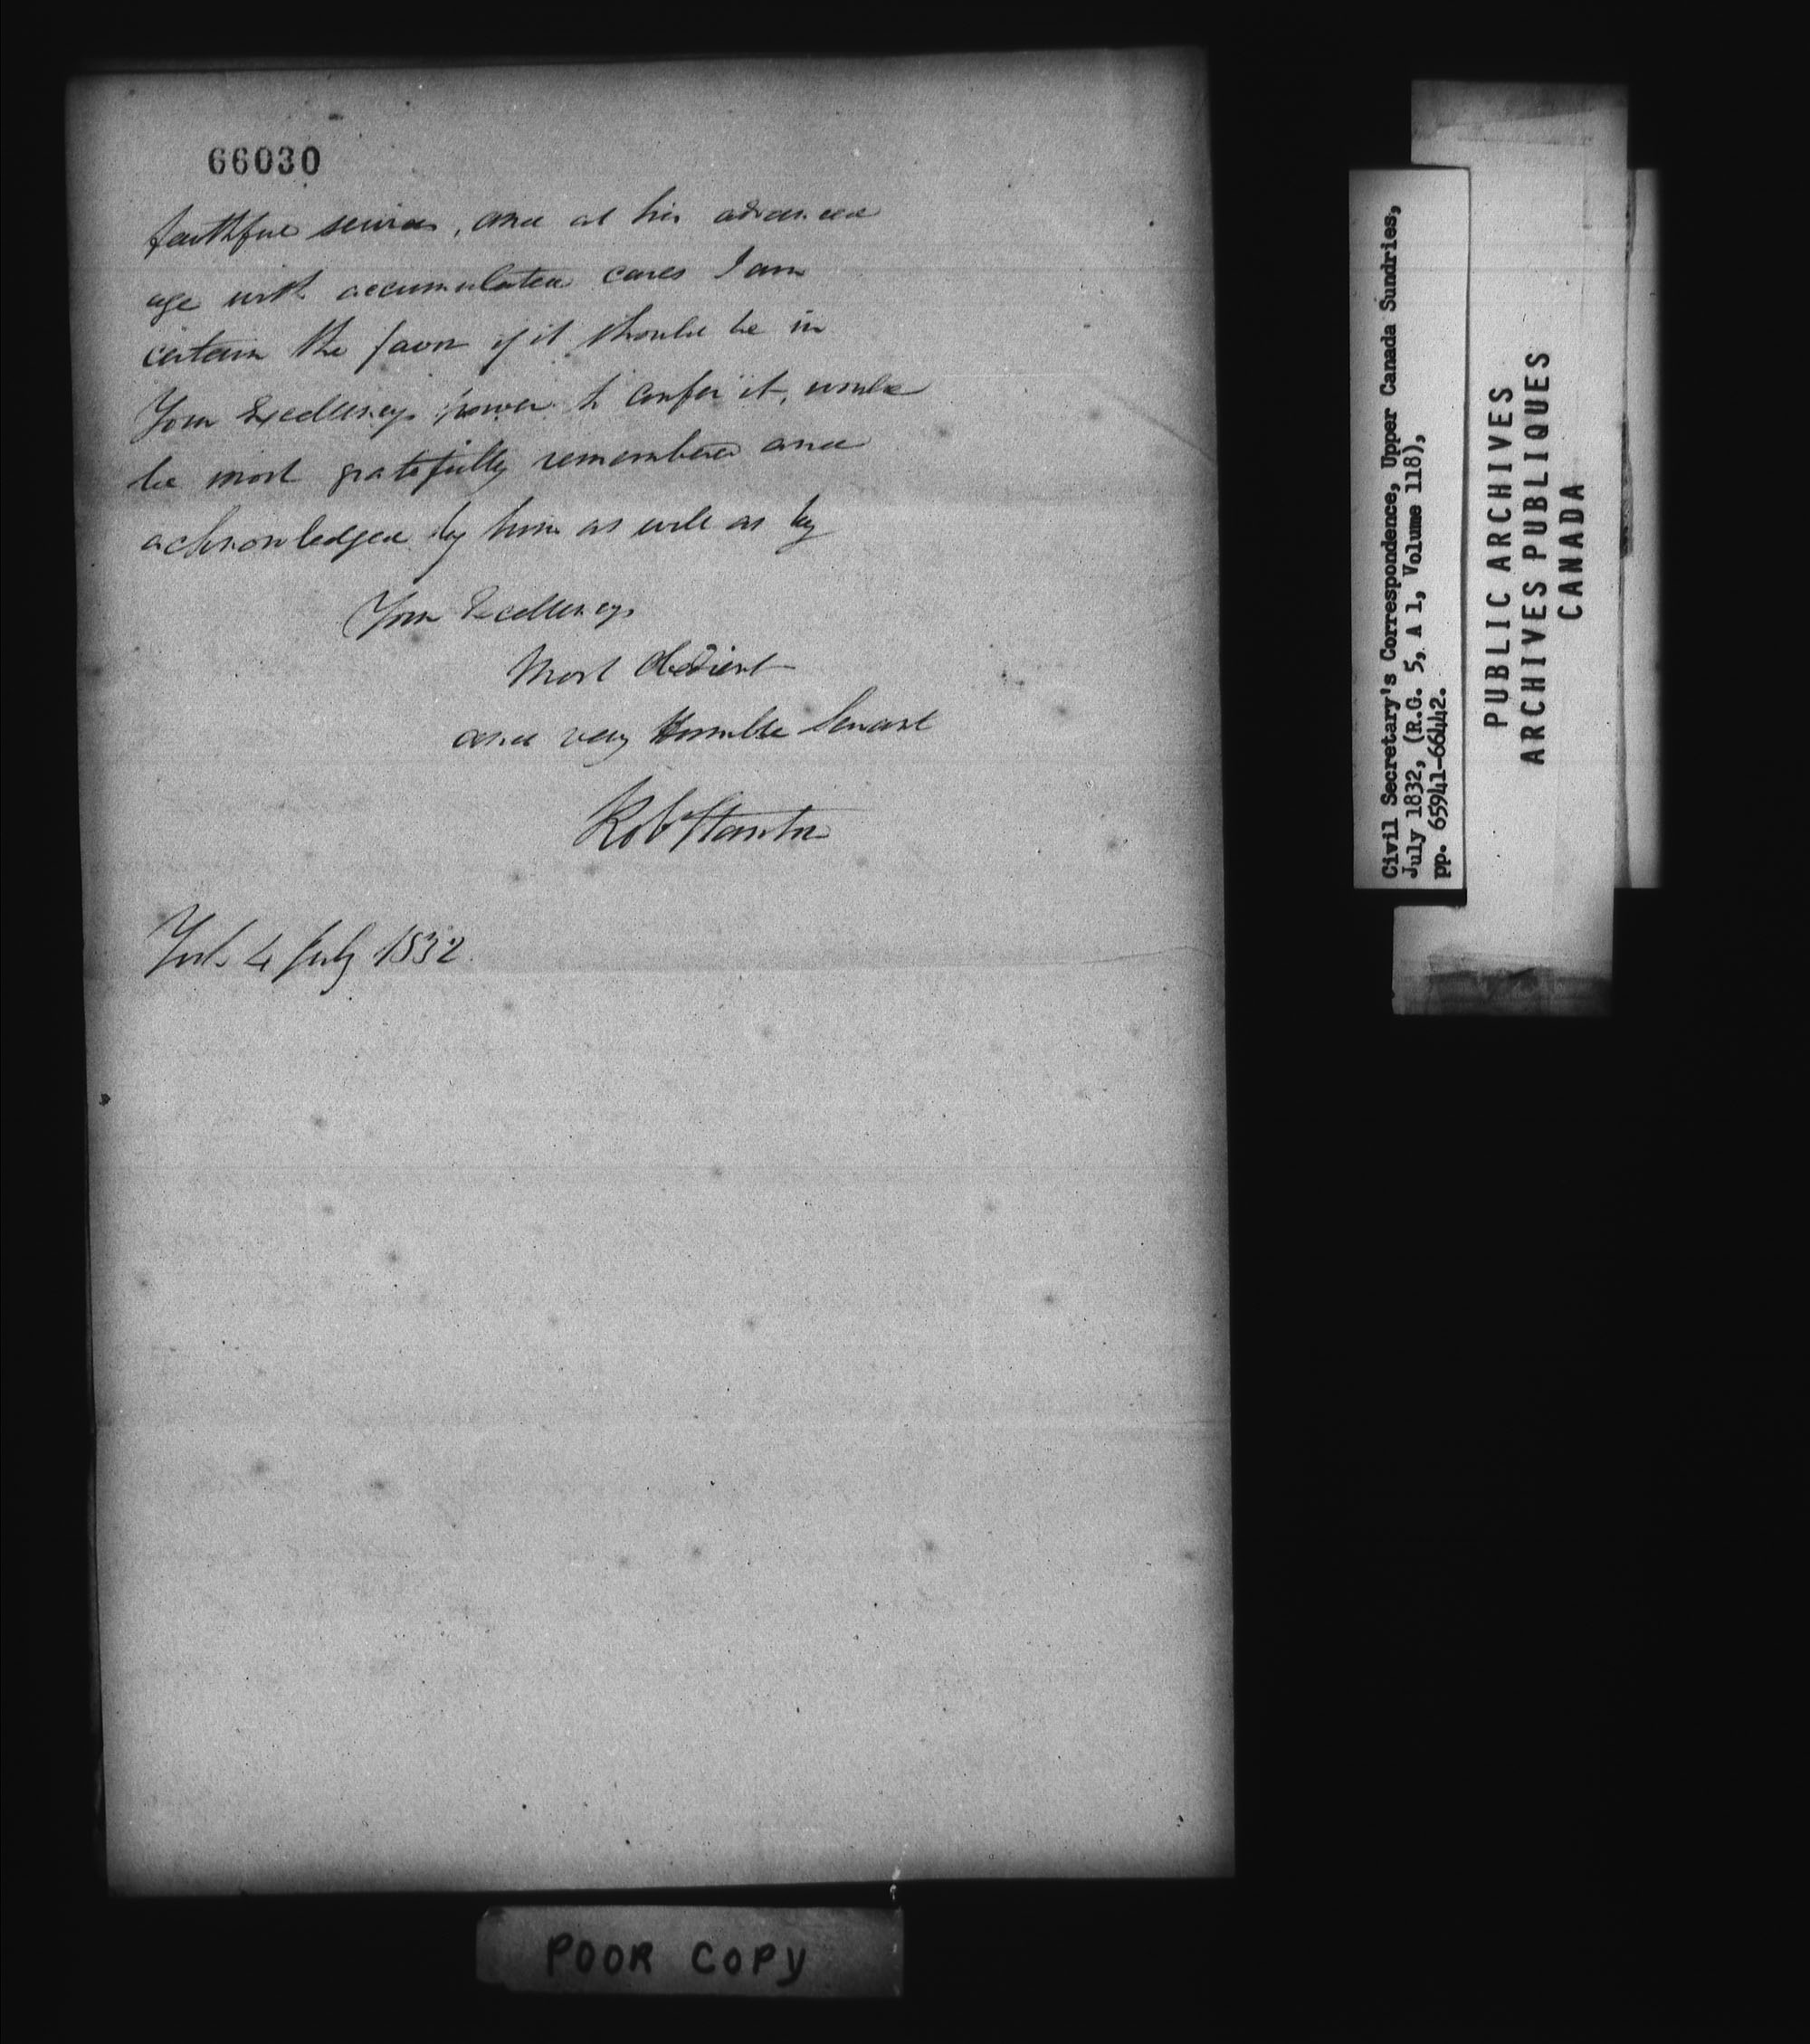 66030
faithful services, and at his advanced
age with accumulated cares I am
certain the favor if it should be in
Your Excellencys power to confer it, would
be most gratefully remembered and
acknowledged by him as well as by
Your Excellencys
Most Obedient
and very Humble Servant
Rob Stanton
York 4 July 1832.
Civil Secretary's Correspondence, Upper Canada Sundries,
July 1832, (R.G. 5, A 1, Volume 118),
pp. 65941-66442.
PUBLIC ARCHIVES
ARCHIVES PUBLIQUES
CANADA
POOR COPY